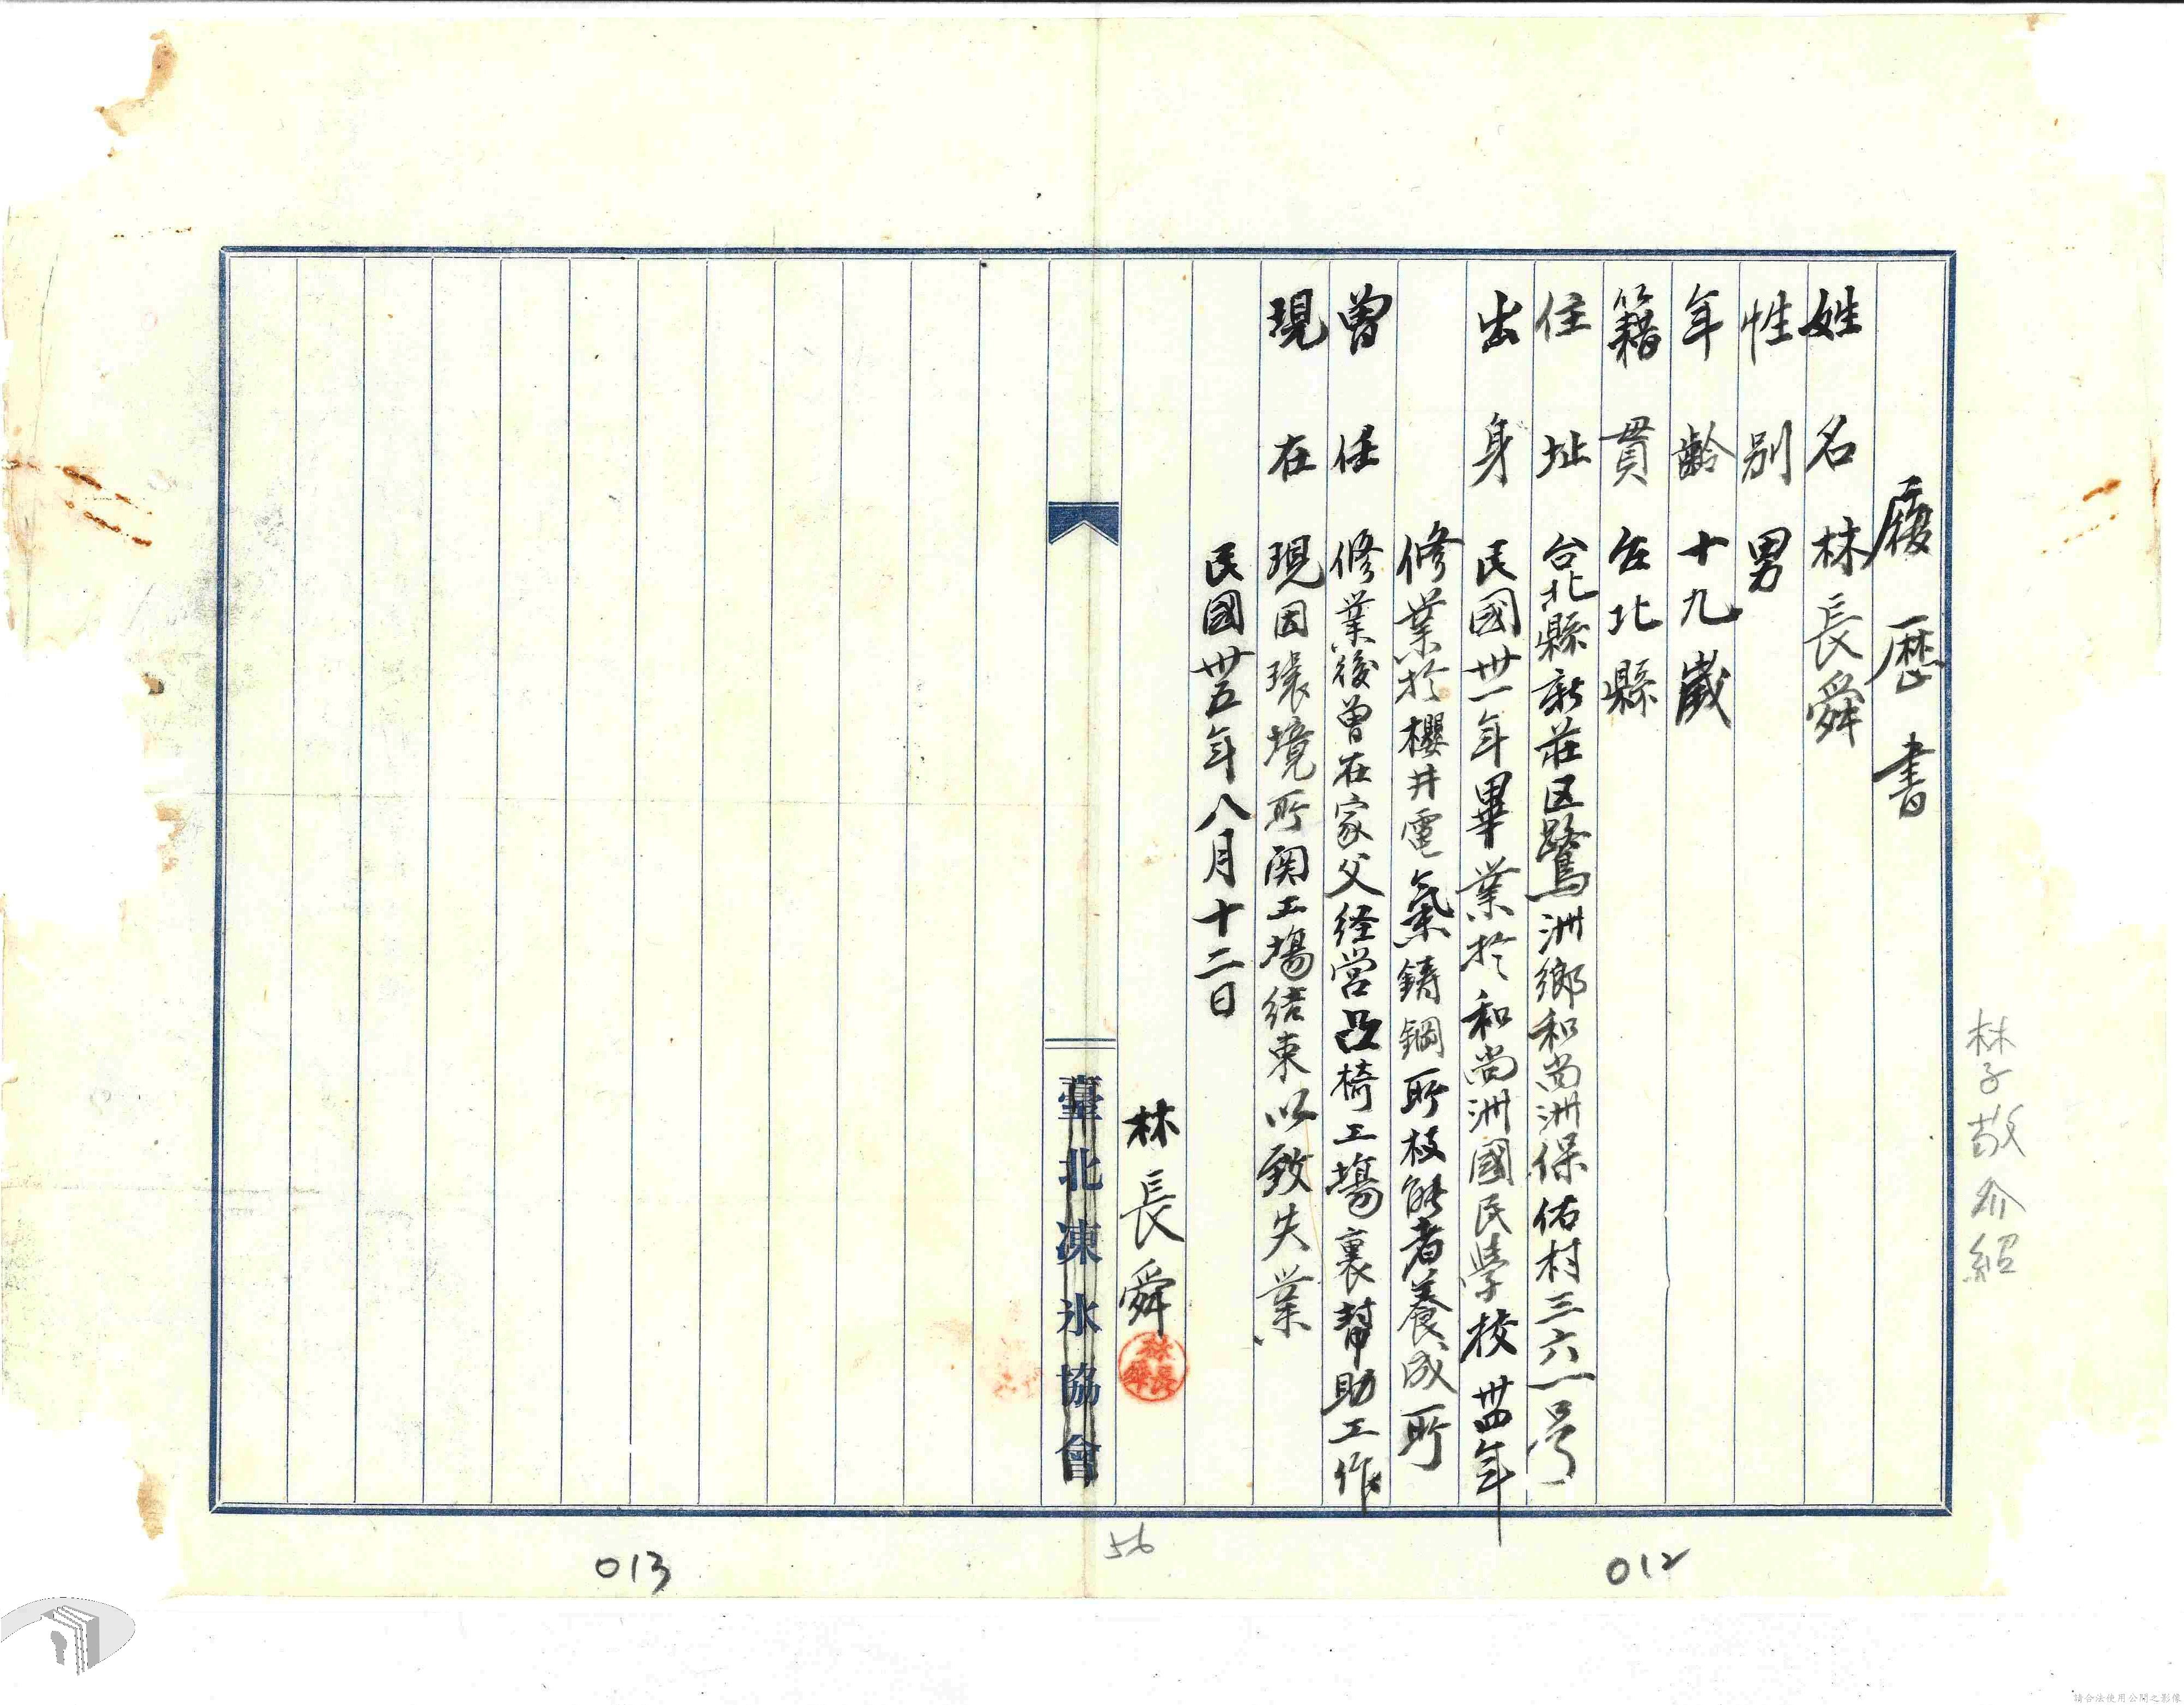 林子敬介紹
履歷書
姓名 林長舜
性別 男
年齡 十九歲
籍貫 台北縣
住址 台北縣新莊区鷺洲鄉和尚洲保佑村三六一号
出身 民國卅一年畢業於和尚洲國民學校 卅四年
修業於櫻井電氣鑄鋼所技能者養成所
曾任 修業後曾在家父経営 椅工場裏幫助工作
現在 現因環境所関工場結束以致失業
民國卅五年八月十二日
林長舜
林長舜
臺北凍氷協會
56
012
013
請合法使用公開之影像